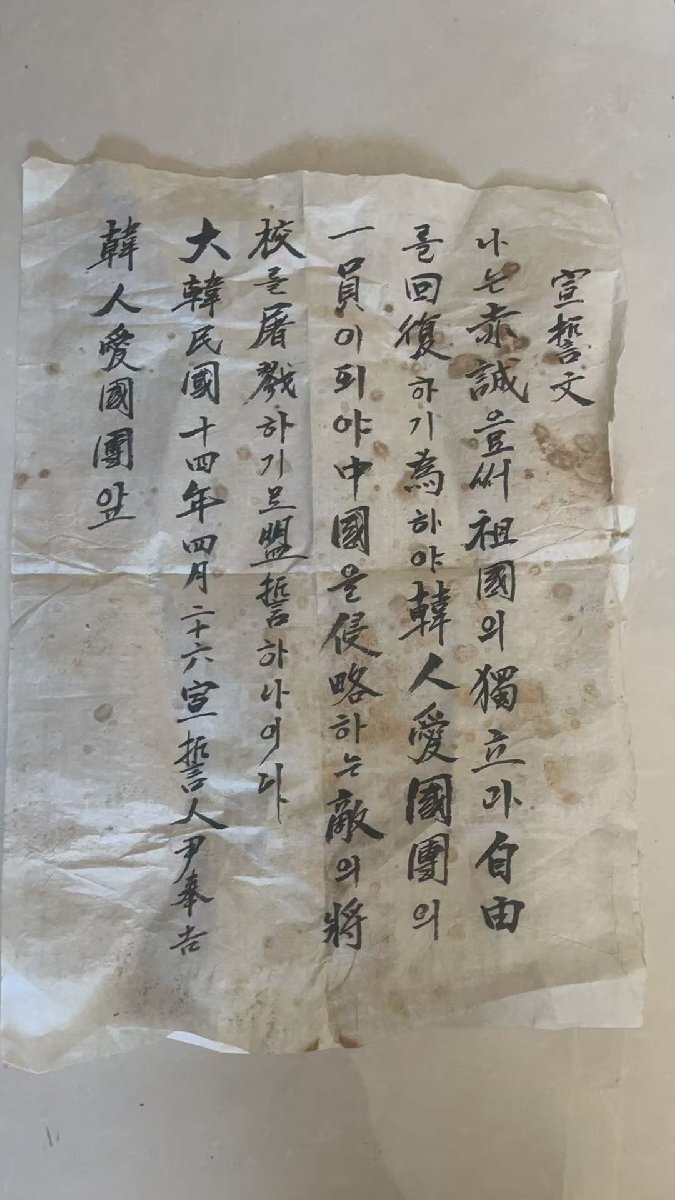 宣誓文
나는赤誠으로써祖國의獨立과自由
를回復하기爲하야韓人愛國團의
一員이되야中國을侵略하는敵의將
校를屠戮하기로盟誓하나이다
大韓民國十四年四月二十六宣誓人尹奉吉
韓人愛國團앞